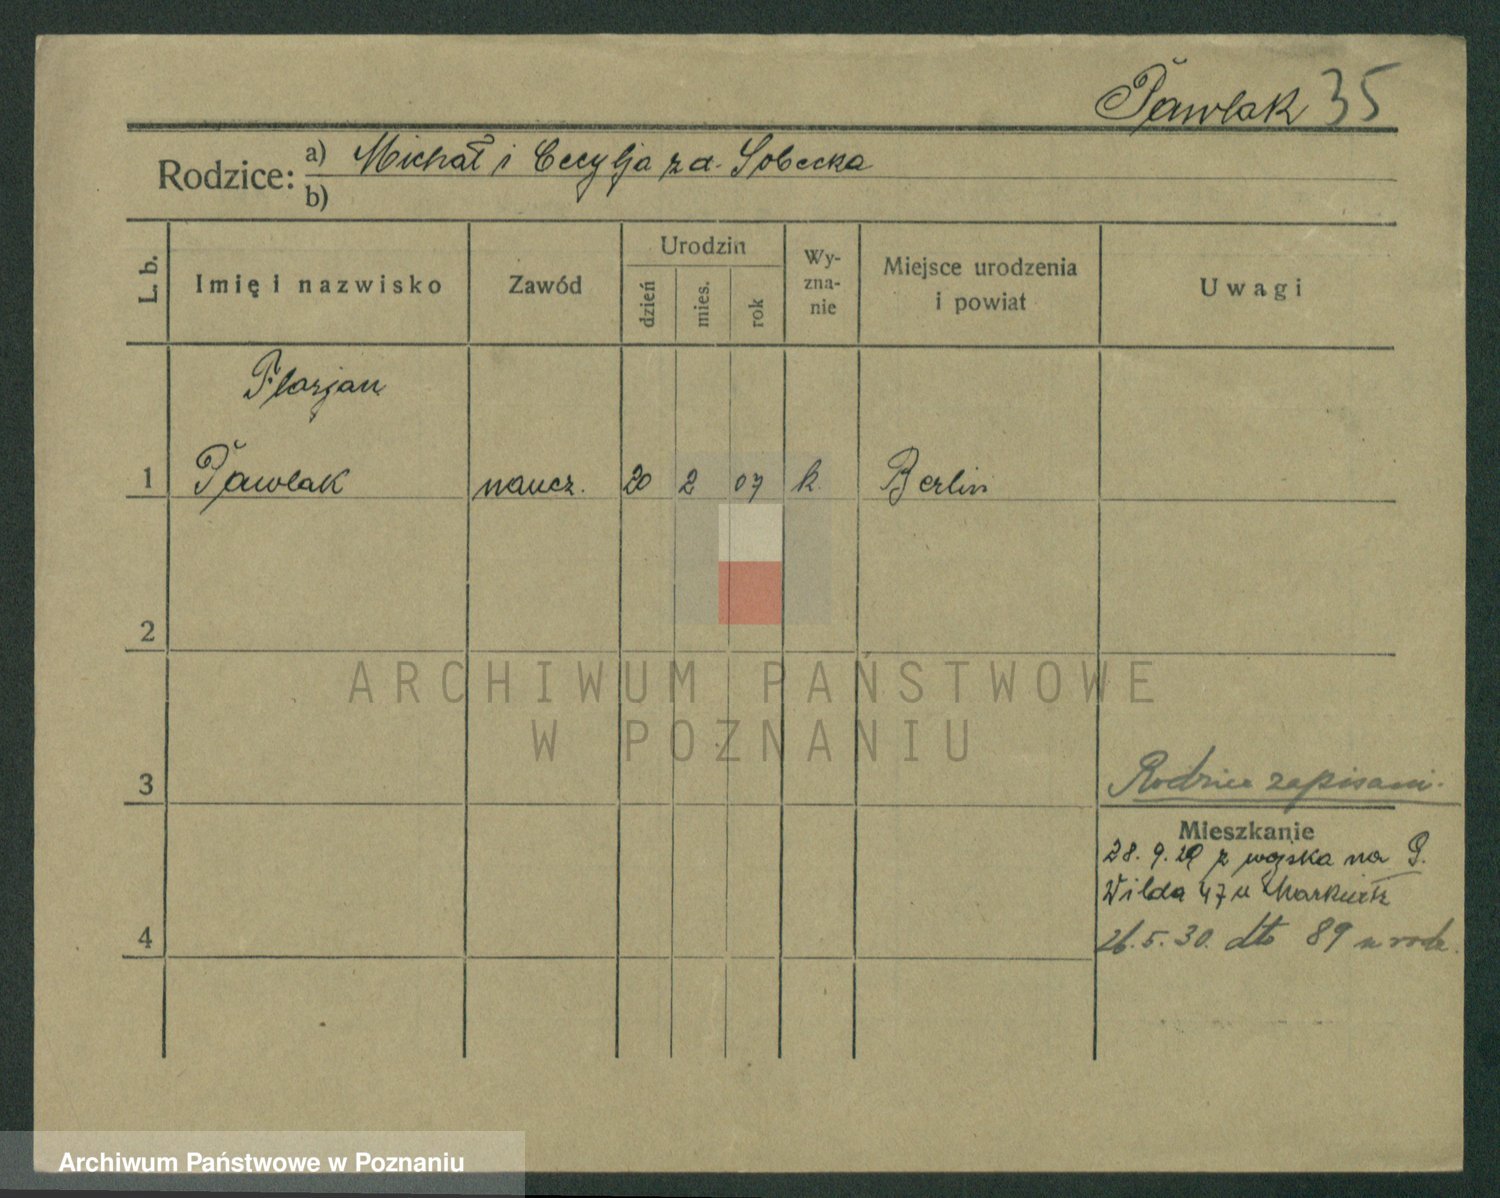 Pawlak 35
Rodzice: a) Michał i Cecylja z d. Sobecka
b)
L. b.
Imię i nazwisko
Zawód
Urodzin
dzień
mies.
rok
Wy-
zna-
nie
Miejsce urodzenia
i powiat
Uwagi
Florjan
1 Pawlak naucz. 20 2 07 k. Berlin
2
ARCHIWUM PAŃSTWOWE
W POZNANIU
3
Rodzice zapisani.
Mieszkanie
28. 9. 29 z wojska na G.
Wilda 47 u
4
26. 5. 30. dto 89 u rodz.
Archiwum Państwowe w Poznaniu